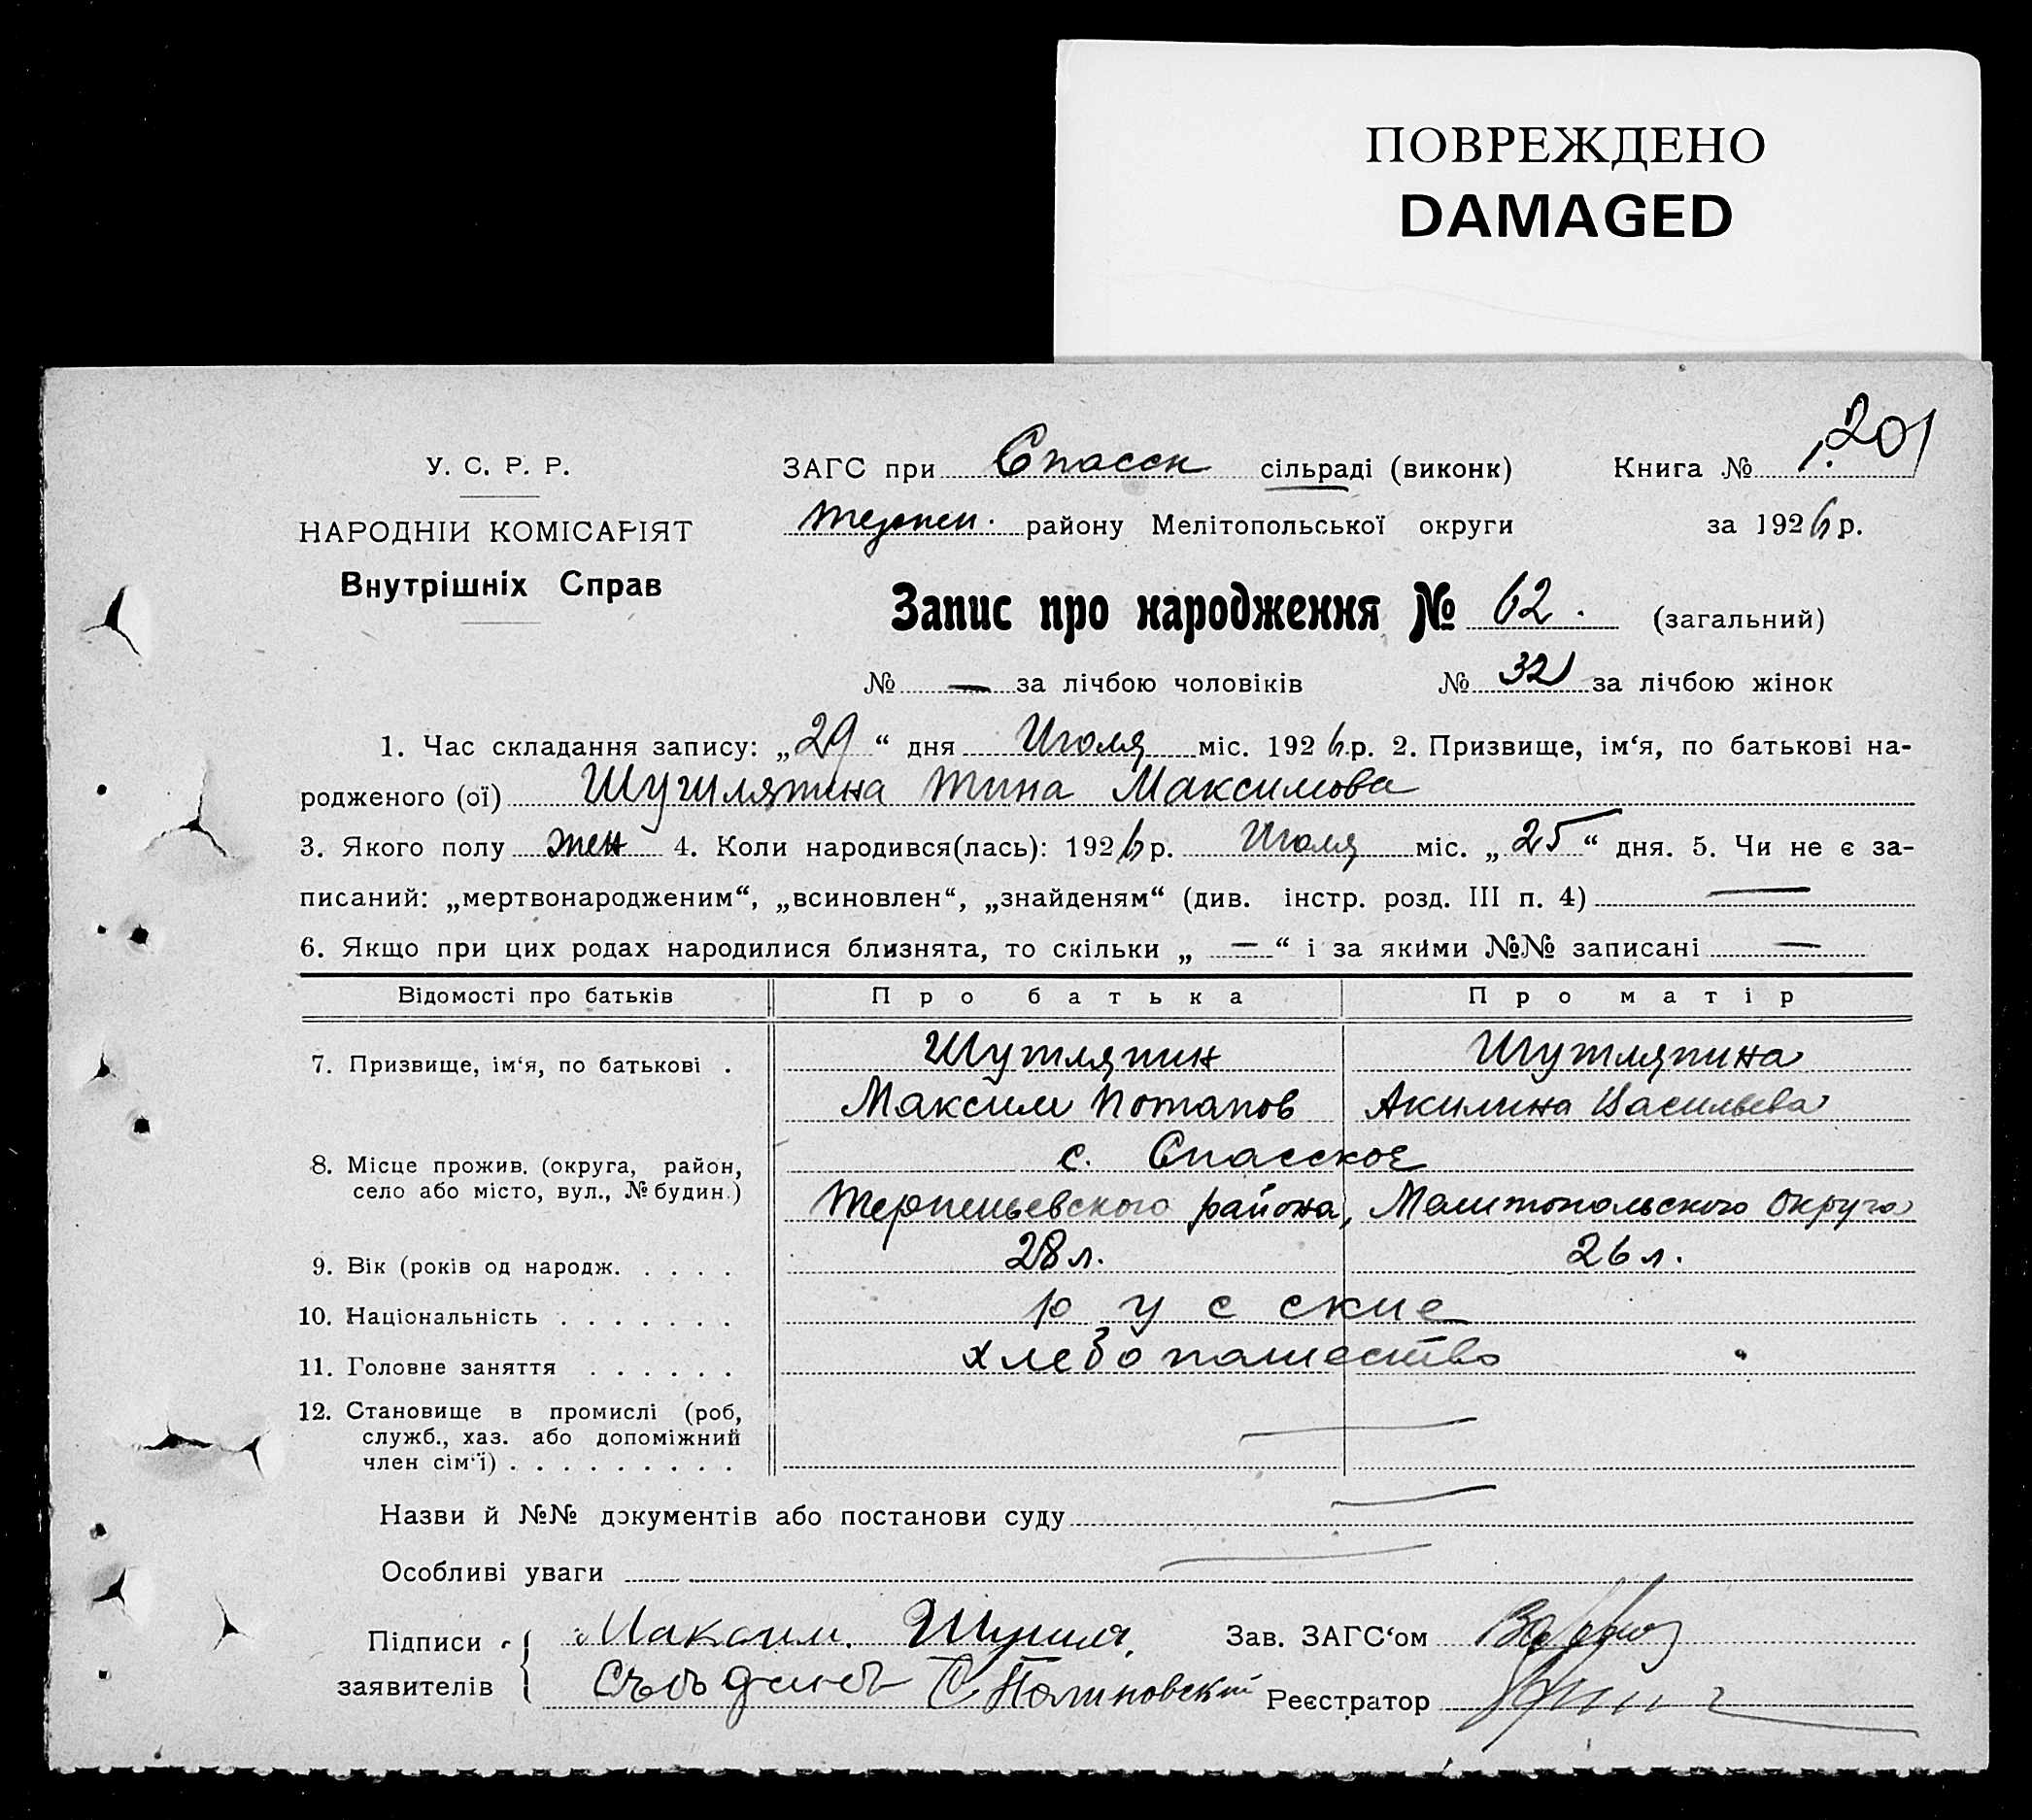 ПОВРЕЖДЕНО
DAMAGED
201
У. С. Р. Р.
ЗАГС при Спасск сільраді (виконк) Книга № 1.
НАРОДНІЙ КОМІСАРІЯТ
Терпен. району Мелітопольської округи за 1926 р.
Внутрішніх Справ
Запис про народження № 62. (загальний)
№ — за лічбою чоловіків № 32 за лічбою жінок
1. Час складання запису: „29“ дня Июля міс. 1926 р. 2. Призвище, ім‘я, по батькові на-
родженого (ої) Шутляпина Тина Максимова
3. Якого полу жен 4. Коли народився(лась): 1926 р. Июля міс. „25“ дня. 5. Чи не є за-
писаний: „мертвонародженим“, „всиновлен“, „знайденям“ (див. інстр. розд. III п. 4) —
6. Якщо при цих родах народилися близнята, то скільки „ — “ і за якими №№ записані —
Відомості про батьків Про батька Про матір
7. Призвище, ім‘я, по батькові . Шутляпин Шутляпина
Максим Потапов Акилина Васильева
8. Місце прожив. (округа, район, село або місто, вул., № будин.) с. Спасское
Терпеньевского района, Мелитопольского Округа
9. Вік (років од народж. . . . . 28 л. 26 л.
10. Національність . . . . . . . русские
11. Головне заняття . . . . . . хлебопашество "
12. Становище в промислі (роб,
служб., хаз. або допоміжний
член сім‘ї) . . . . . . . . . —
Назви й №№ документів або постанови суду —
Особливі уваги —
Підписи Максим. Зав. ЗАГС‘ом
заявителів С Реєстратор